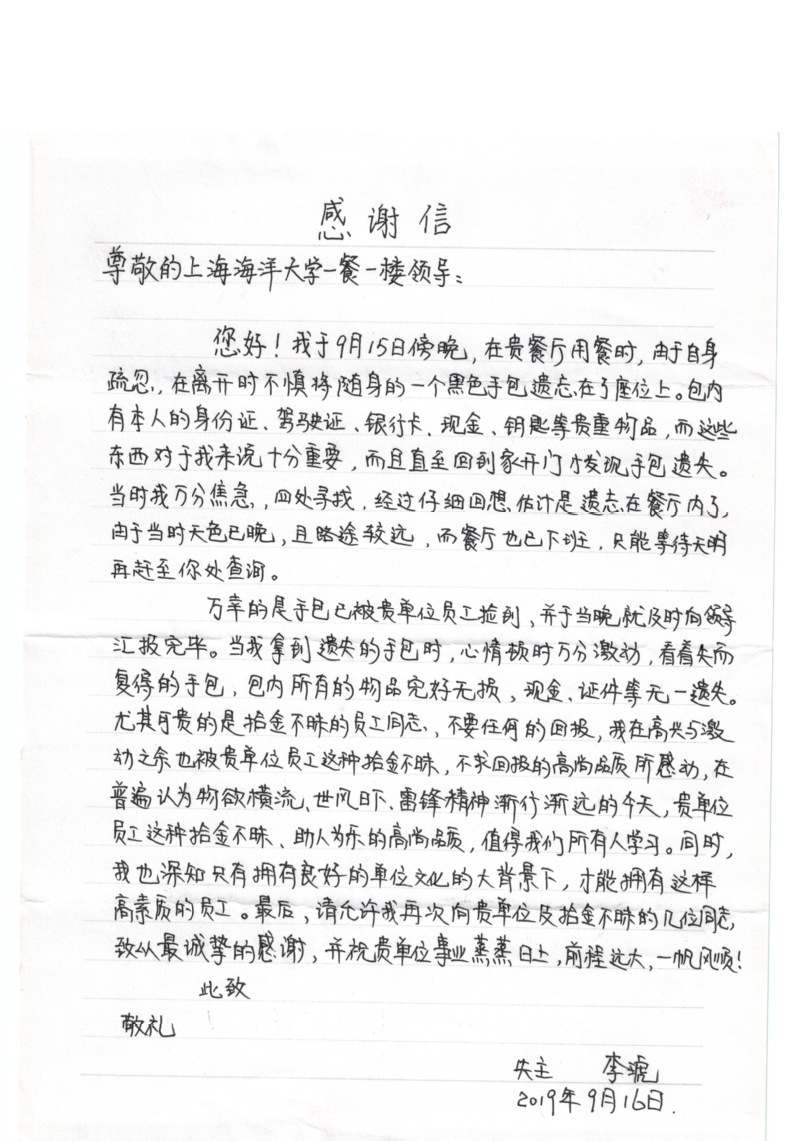 感谢信
尊敬的上海海洋大学一餐一楼领导：
您好！我于9月15日傍晚，在贵餐厅用餐时，由于自身
疏忽，在离开时不慎将随身的一个黑色手包遗忘在了座位上。包内
有本人的身份证、驾驶证、银行卡、现金、钥匙等贵重物品，而这些
东西对于我来说十分重要，而且直至回到家开门才发现手包遗失。
当时我万分焦急，四处寻找，经过仔细回想估计是遗忘在餐厅内了，
由于当时天色已晚，且路途较远，而餐厅也已下班，只能等待天明
再赶至你处查询。
万幸的是手包已被贵单位员工捡到，并于当晚就及时向领导
汇报完毕。当我拿到遗失的手包时，心情顿时万分激动，看着失而
复得的手包，包内所有的物品完好无损，现金、证件等无一遗失。
尤其可贵的是拾金不昧的员工同志，不要任何的回报，我在高兴与激
动之余也被贵单位员工这种拾金不昧，不求回报的高尚品质所感动，在
普遍认为物欲横流、世风日下、雷锋精神渐行渐远的今天，贵单位
员工这种拾金不昧、助人为乐的高尚品质，值得我们所有人学习。同时，
我也深知只有拥有良好的单位文化的大背景下，才能拥有这样
高素质的员工。最后，请允许我再次向贵单位及拾金不昧的几位同志，
致以最诚挚的感谢，并祝贵单位事业蒸蒸日上，前程远大，一帆风顺！
此致
敬礼
失主 李琥
2019年9月16日.